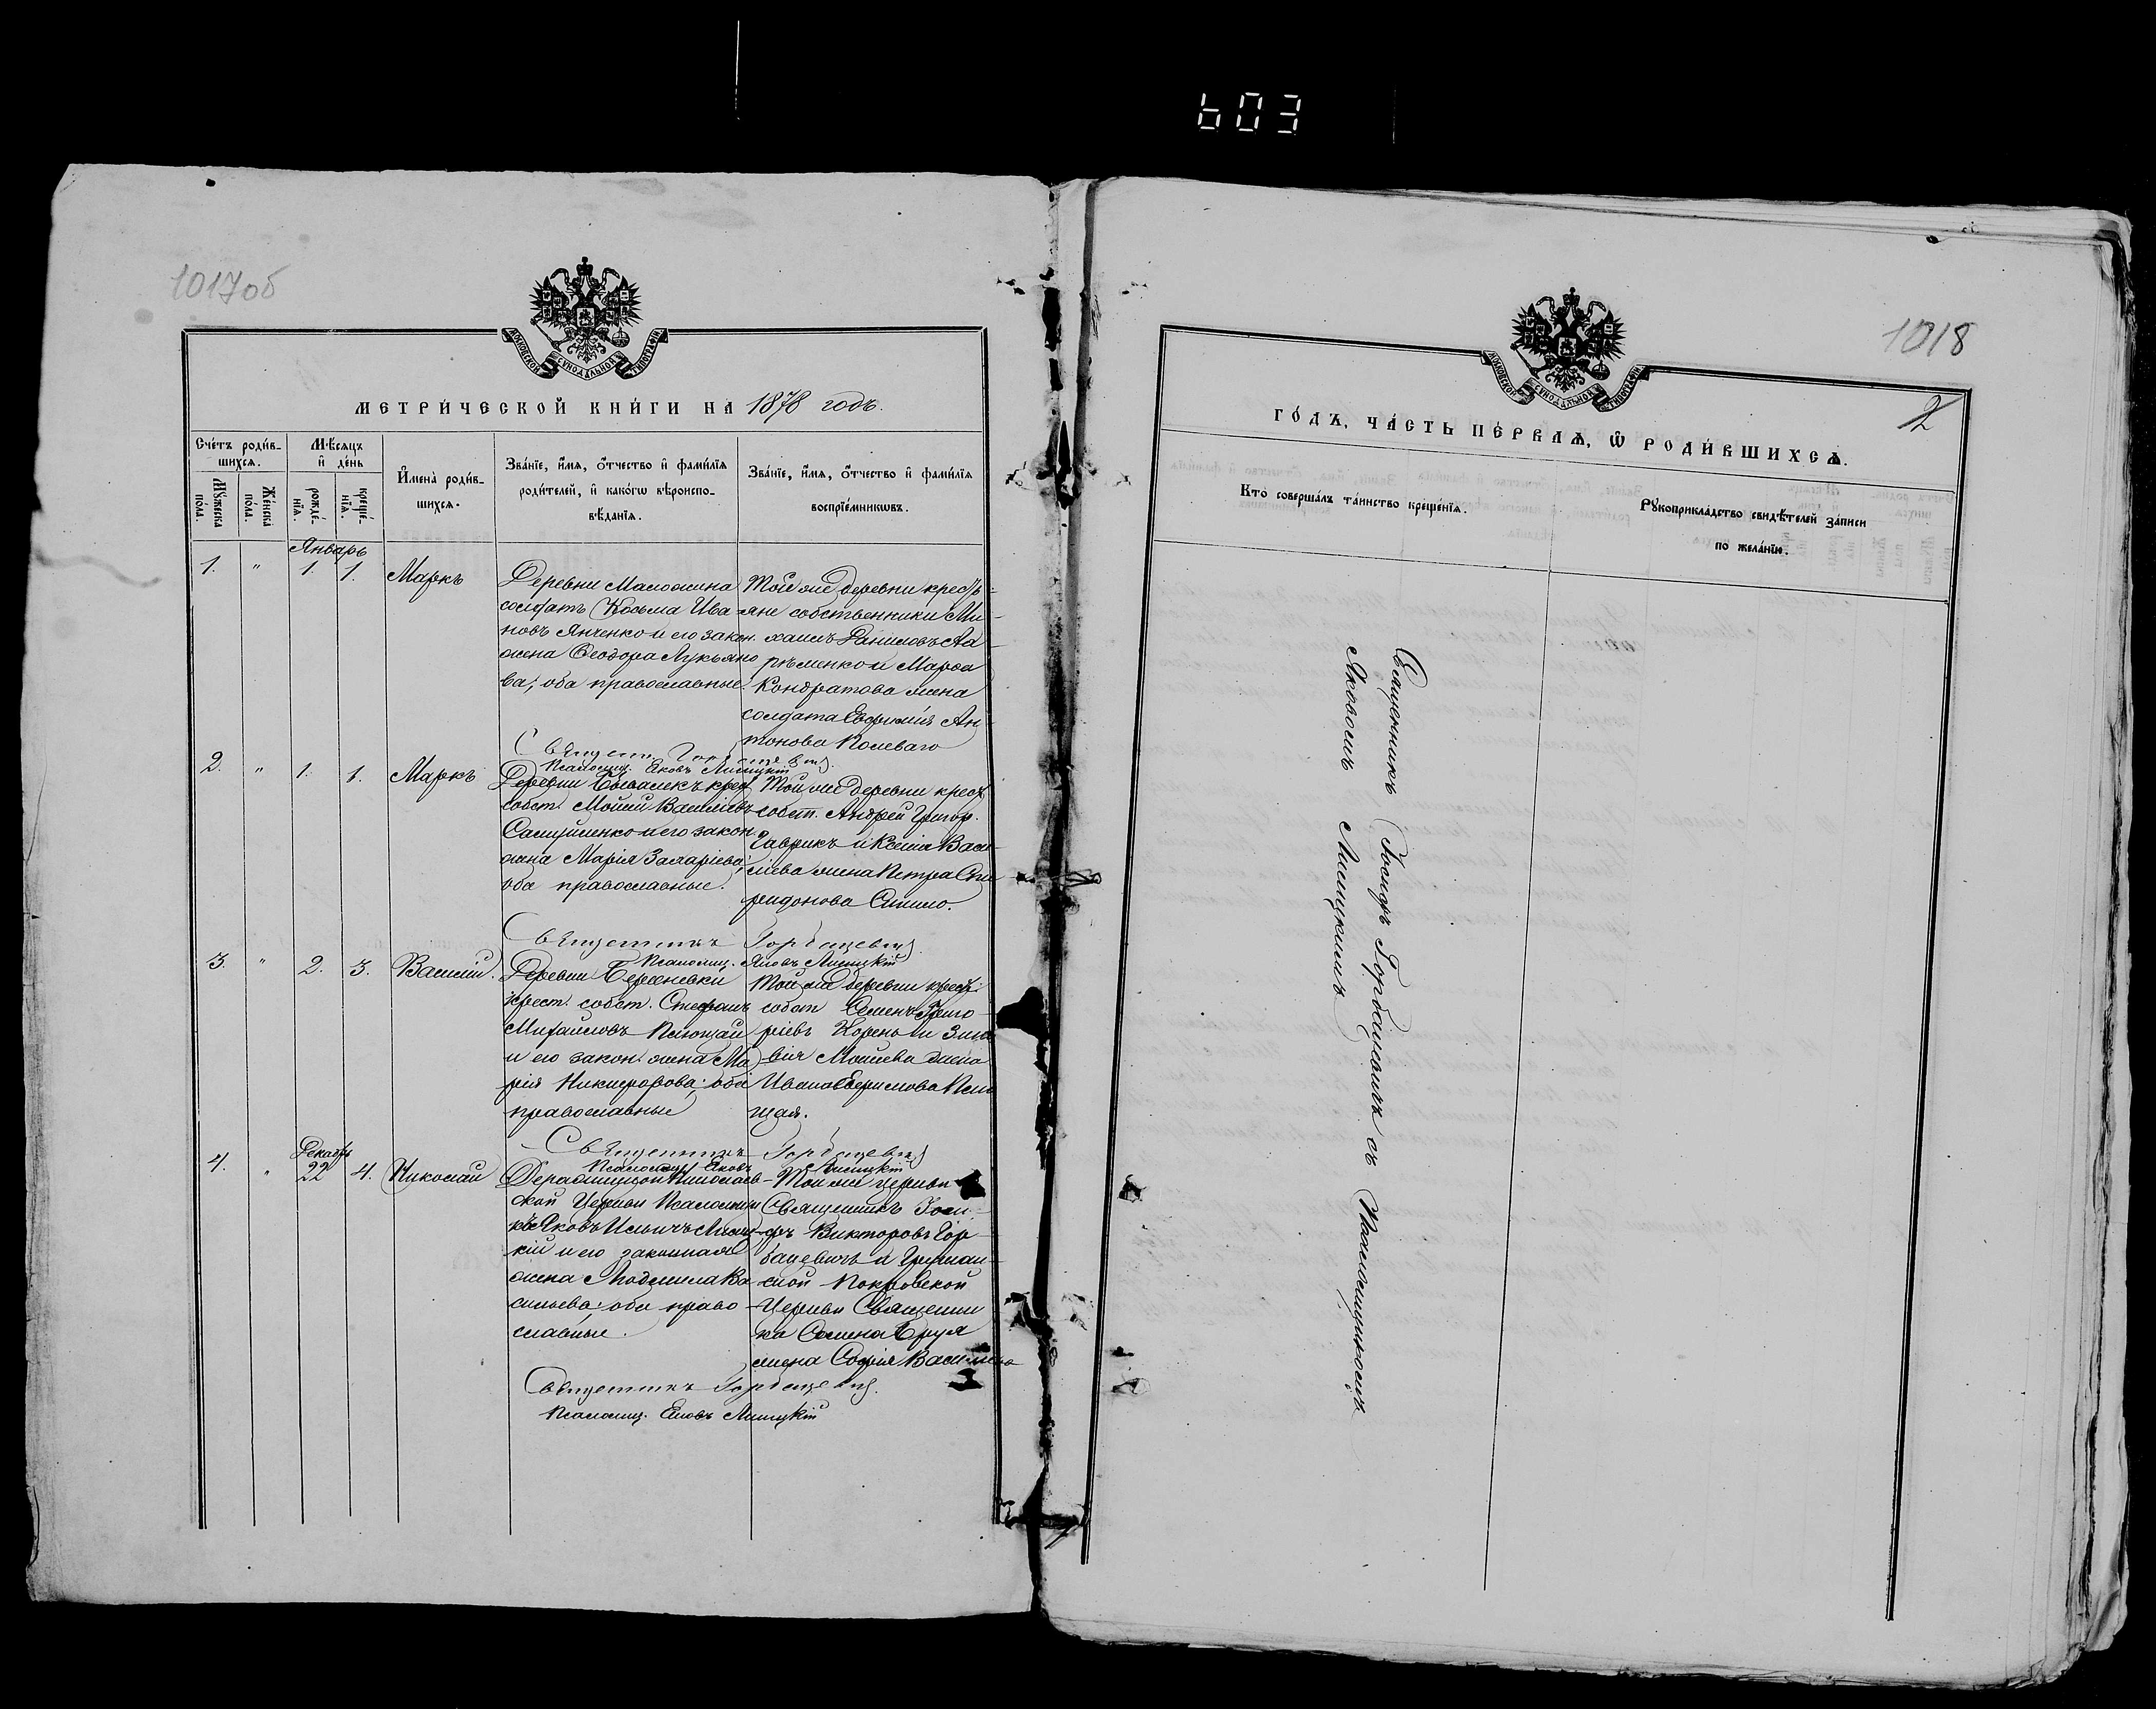 603
1017об
МОСКОВСКОЙ СѴНОДАЛЬНОЙ ТИПОГРАФІИ
МЕТРИ́ЧЕСКОЙ КНИ́ГИ НА 1878 годъ.
Сче́тъ роди́в-
шихсѧ.
Мꙋ́жеска
по́ла.
Же́нска
по́ла.
Мѣ́сяцъ
и҆ де́нь
рожде́-
нїѧ.
креще́-
нїѧ.
И҆мена̀ роди́в-
шихсѧ.
Зва́нїе, и҆́мѧ, ѻ҆́тчество и҆ фами́лїѧ
роди́телей, и҆ како́гѡ вѣроиспо-
вѣ́данїѧ.
Зва́нїе, и҆́мѧ, ѻ҆́тчество и҆ фами́лїѧ
воспрїе́мникѡвъ.
Январь
1. " 1. 1. Маркъ
Деревни
солдатъ Козьма Ива-
новъ Янченко и его закон.
жена Ѳеодора Лукьяно
ва; оба православные.
Той же деревни кресть-
яне собственники Ми-
хаилъ Даниловъ
и Марѳа
Кондратова жена
солдата Ан-
тонова
Священ. Горбацевичъ.
Псаломщ. Яковъ Лисицкій
2. " 1. 1. Маркъ
Деревни крест.
собст. Мойсей Васильевъ
и его закон.
жена Марія Захаріева;
оба православные.
Той же деревни крест.
собст. Андрей Григор.
Гаврикъ и Ксенія Васи-
ліева жена Петра Спи
ридонова
Священникъ Горбацевичъ
Псаломщ. Яковъ Лисицкій
3. " 2. 3. Василій.
Деревни
крест. собст. Стефанъ
Михайловъ
и его закон. жена Ма
рія Никифорова; оба
православные
Той же деревни крест.
собст. Семенъ Григо-
ріевъ и Зино
вія Моисеева жена
Ивана Ефимова
Священникъ Горбацевичъ
Псаломщ. Яковъ Лисицкій
Декабрь
4. " 22 4. Николай
Николаев-
ской Церкви Псаломщи
къ Яковъ Ильичъ Лисиц-
кій и его законная
жена Людмила Ва
сильева; оба право-
славные.
Той же церкви
Священникъ Іоси-
фъ Викторовъ Гор
бацевичъ и
ской Покровской
Церкви Священни
ка Семена
жена Софія Васильева
Священникъ Горбацевичъ.
Псаломщ. Яковъ Лисицкій
1018
2
МОСКОВСКОЙ СѴНОДАЛЬНОЙ ТИПОГРАФІИ
ГО́ДЪ, ЧА́СТЬ ПЕ́РВАѦ, Ѡ҆ РОДИ́ВШИХСѦ.
Кто̀ соверша́лъ та́инство креще́нїѧ.
Рꙋкоприкла́дство свидѣ́телей за́писи
по жела́нїю.
Священникъ Іосифъ Горбацевичъ съ Псаломщикомъ
Яковомъ Лисицкимъ